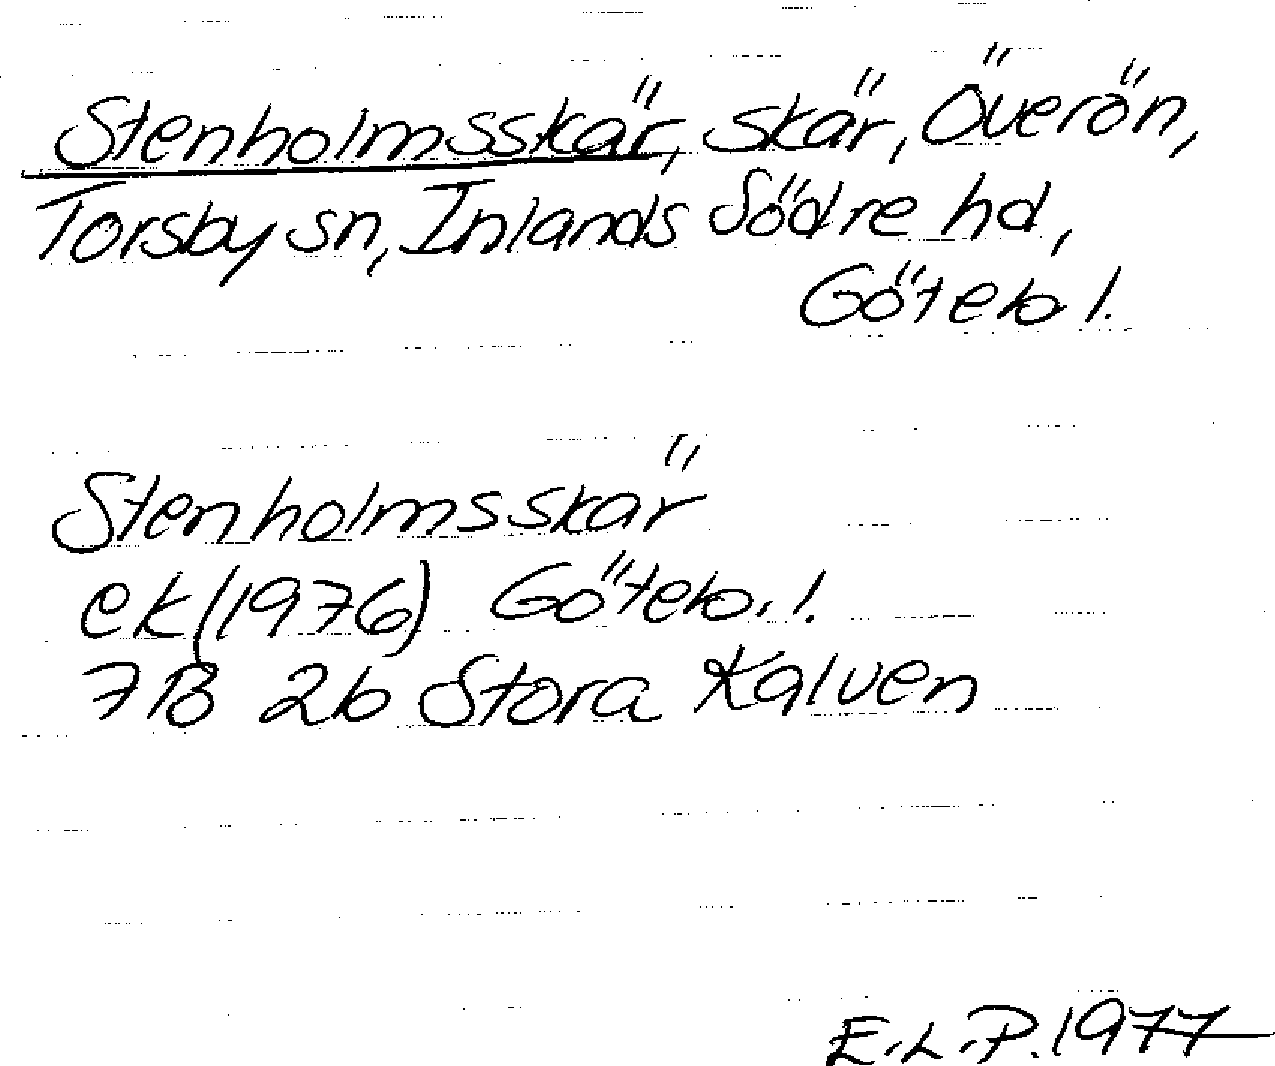 Stenholmsskär, skär, Överön,
Torsby sn, Inlands Södre hd,
Göteb l.
Stenholmsskär
ek (1976) Göteb. l.
7B 2b Stora Kalven
E.L.P. 1977